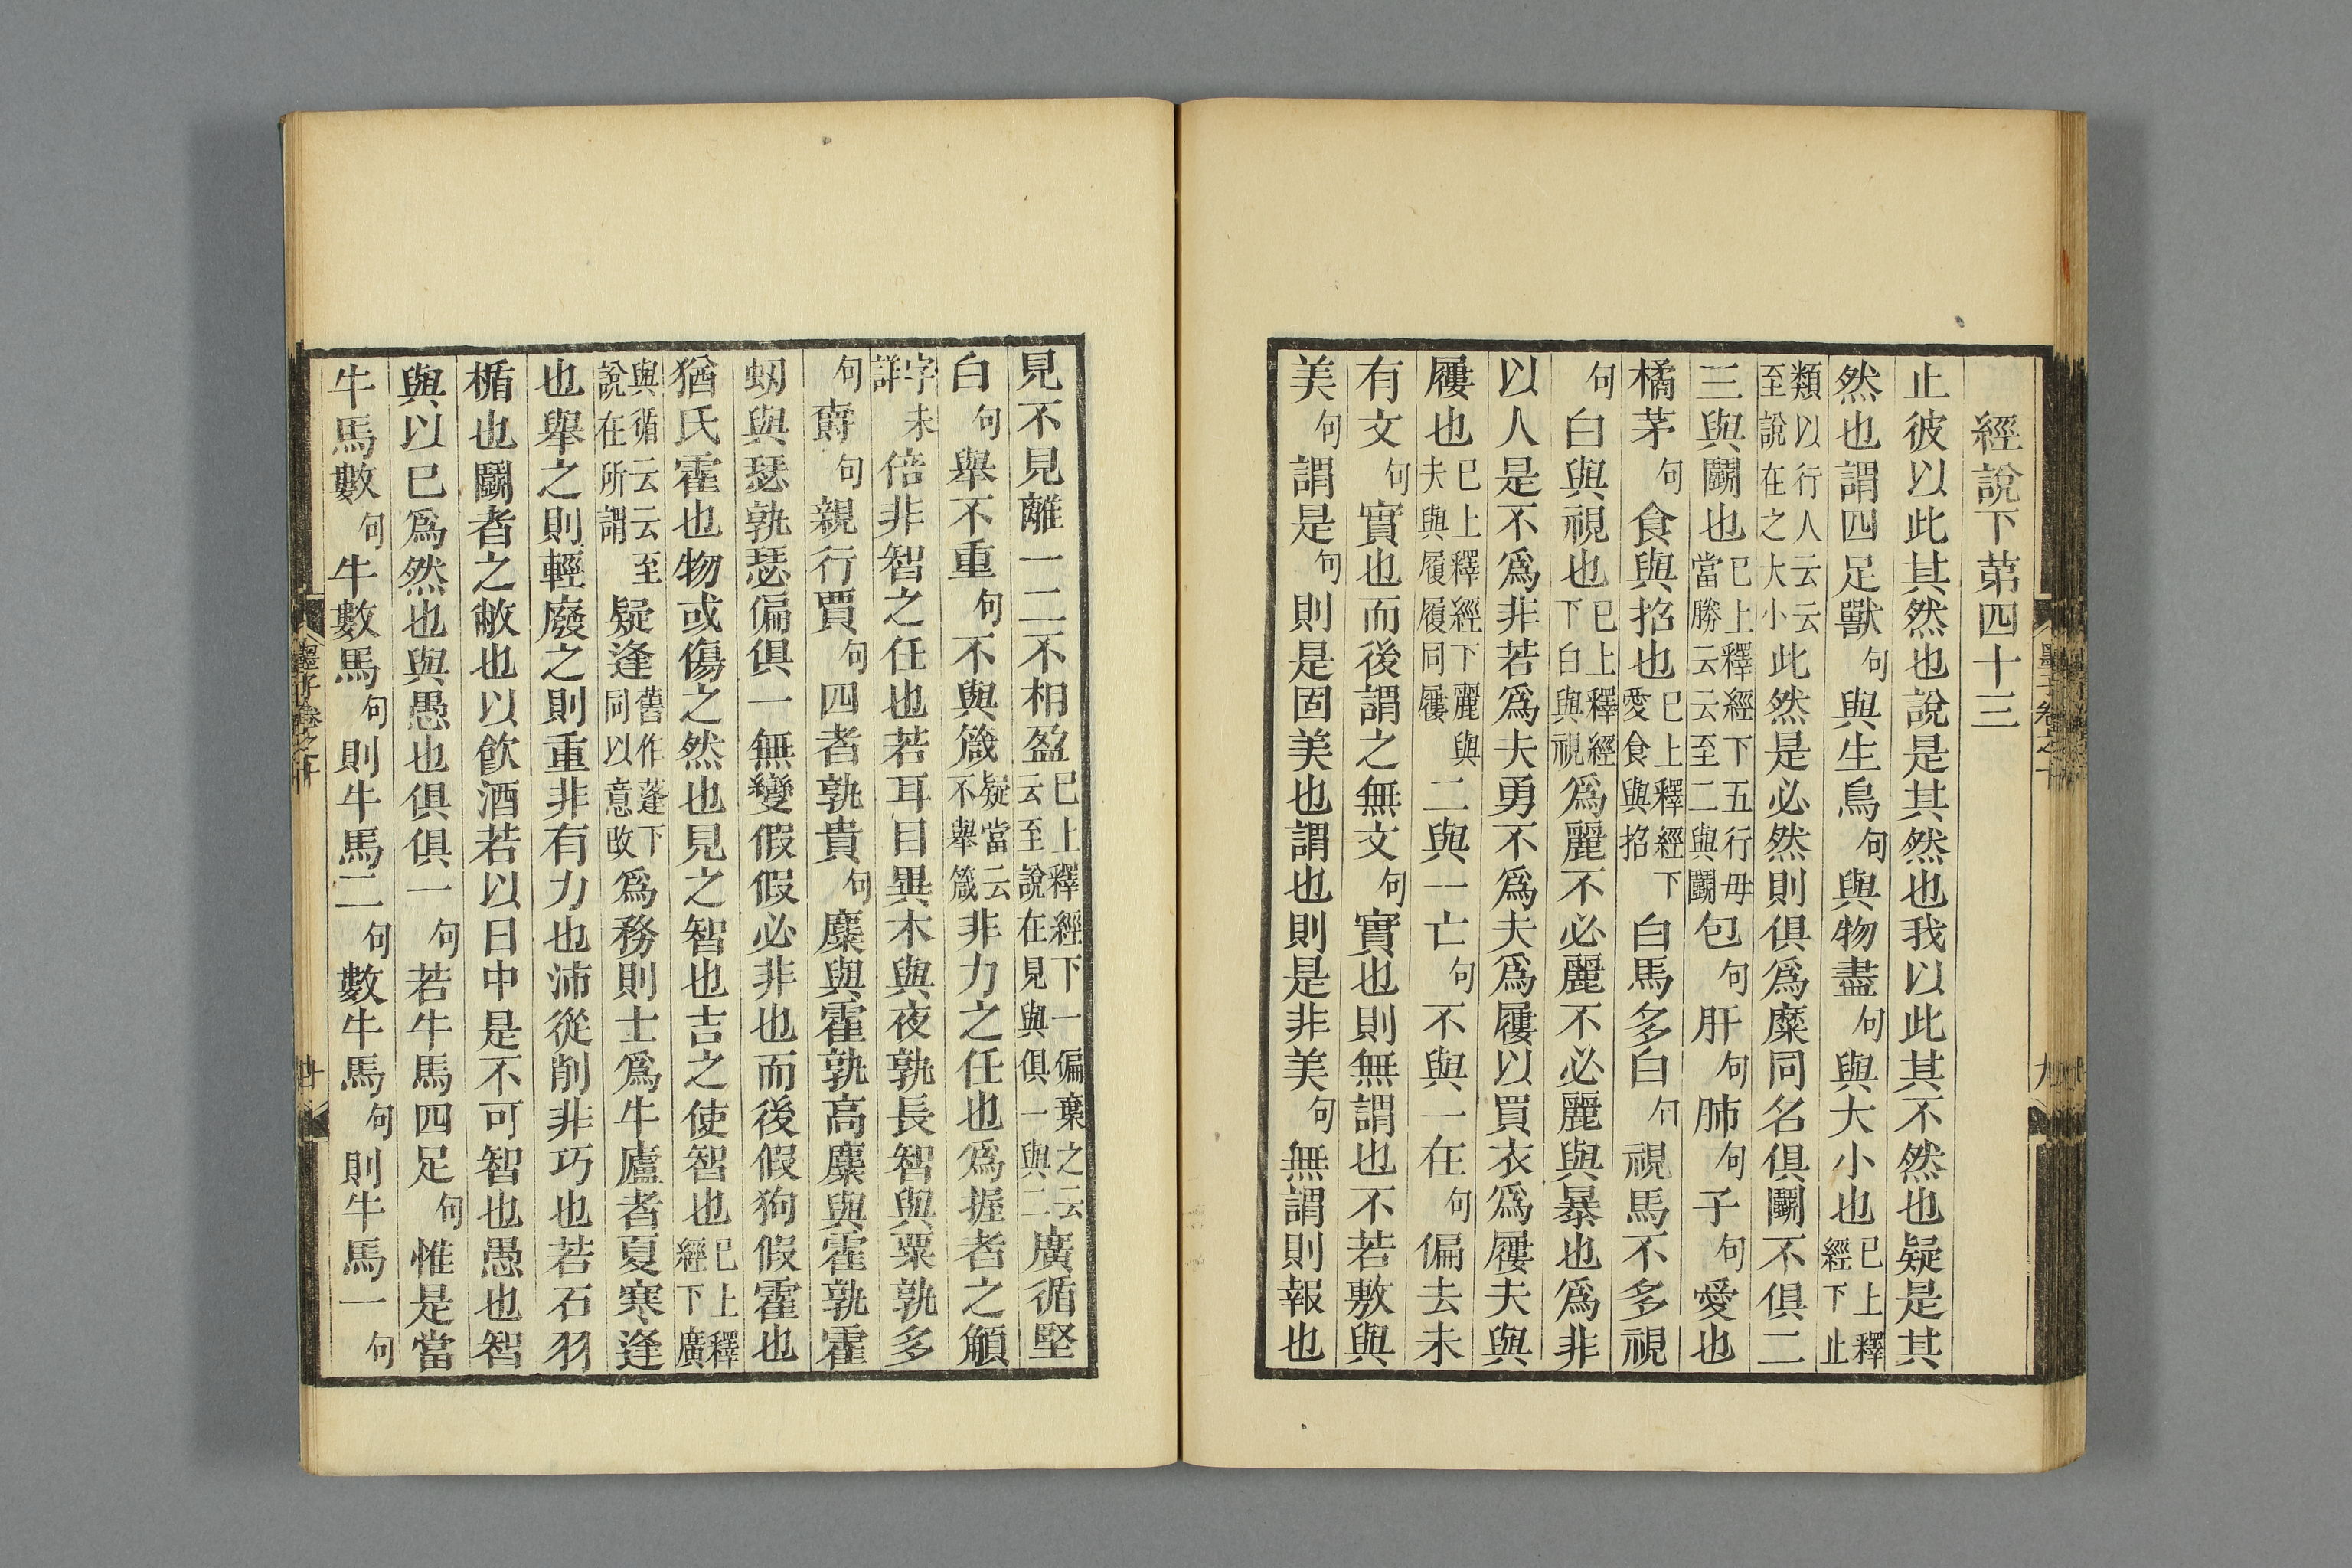 經說下第四十三
止彼以此其然也說是其然也我以此其不然也疑是其
然也謂四足獸句與生鳥句與物盡句與大小也已上釋經下止
類以行人云云至說在之大小此然是必然則俱爲麋同名俱鬭不俱二
三與鬭也已上釋經下五行毋當勝云云至二與鬭包句肝句肺句子句愛也
橘茅句食與招也已上釋經下愛食與招白馬多白句視馬不多視
句白與視也已上釋經下白與視爲麗不必麗不必麗與暴也爲非
以人是不爲非若爲夫勇不爲夫爲屨以買衣爲屨夫與
屨也已上釋經下麗與夫與履履同屨二與一亡句不與一在句偏去未
有文句實也而後謂之無文句實也則無謂也不若敷與
美句謂是句則是固美也謂也則是非美句無謂則報也
墨子卷之十
見不見離一二不相盈已上釋經下一偏棄之云云至說在見與俱一與二廣循堅
白句舉不重句不與箴疑當云不舉箴非力之任也爲握者之觭
字未詳倍非智之任也若耳目異木與夜孰長智與粟孰多
句爵句親行賈句四者孰貴句麋與霍孰高麋與霍孰霍
蚓與瑟孰瑟偏俱一無變假假必非也而後假狗假霍也
猶氏霍也物或傷之然也見之智也吉之使智也已上釋經下廣
與循云云至說在所謂疑逢舊作蓬下同以意改爲務則士爲牛廬者夏寒逢
也舉之則輕廢之則重非有力也沛從削非巧也若石羽
楯也鬭者之敝也以飮酒若以日中是不可智也愚也智
與以已爲然也與愚也俱俱一句若牛馬四足句惟是當
牛馬數句牛數馬句則牛馬二句數牛馬句則牛馬一句
墨子卷之十